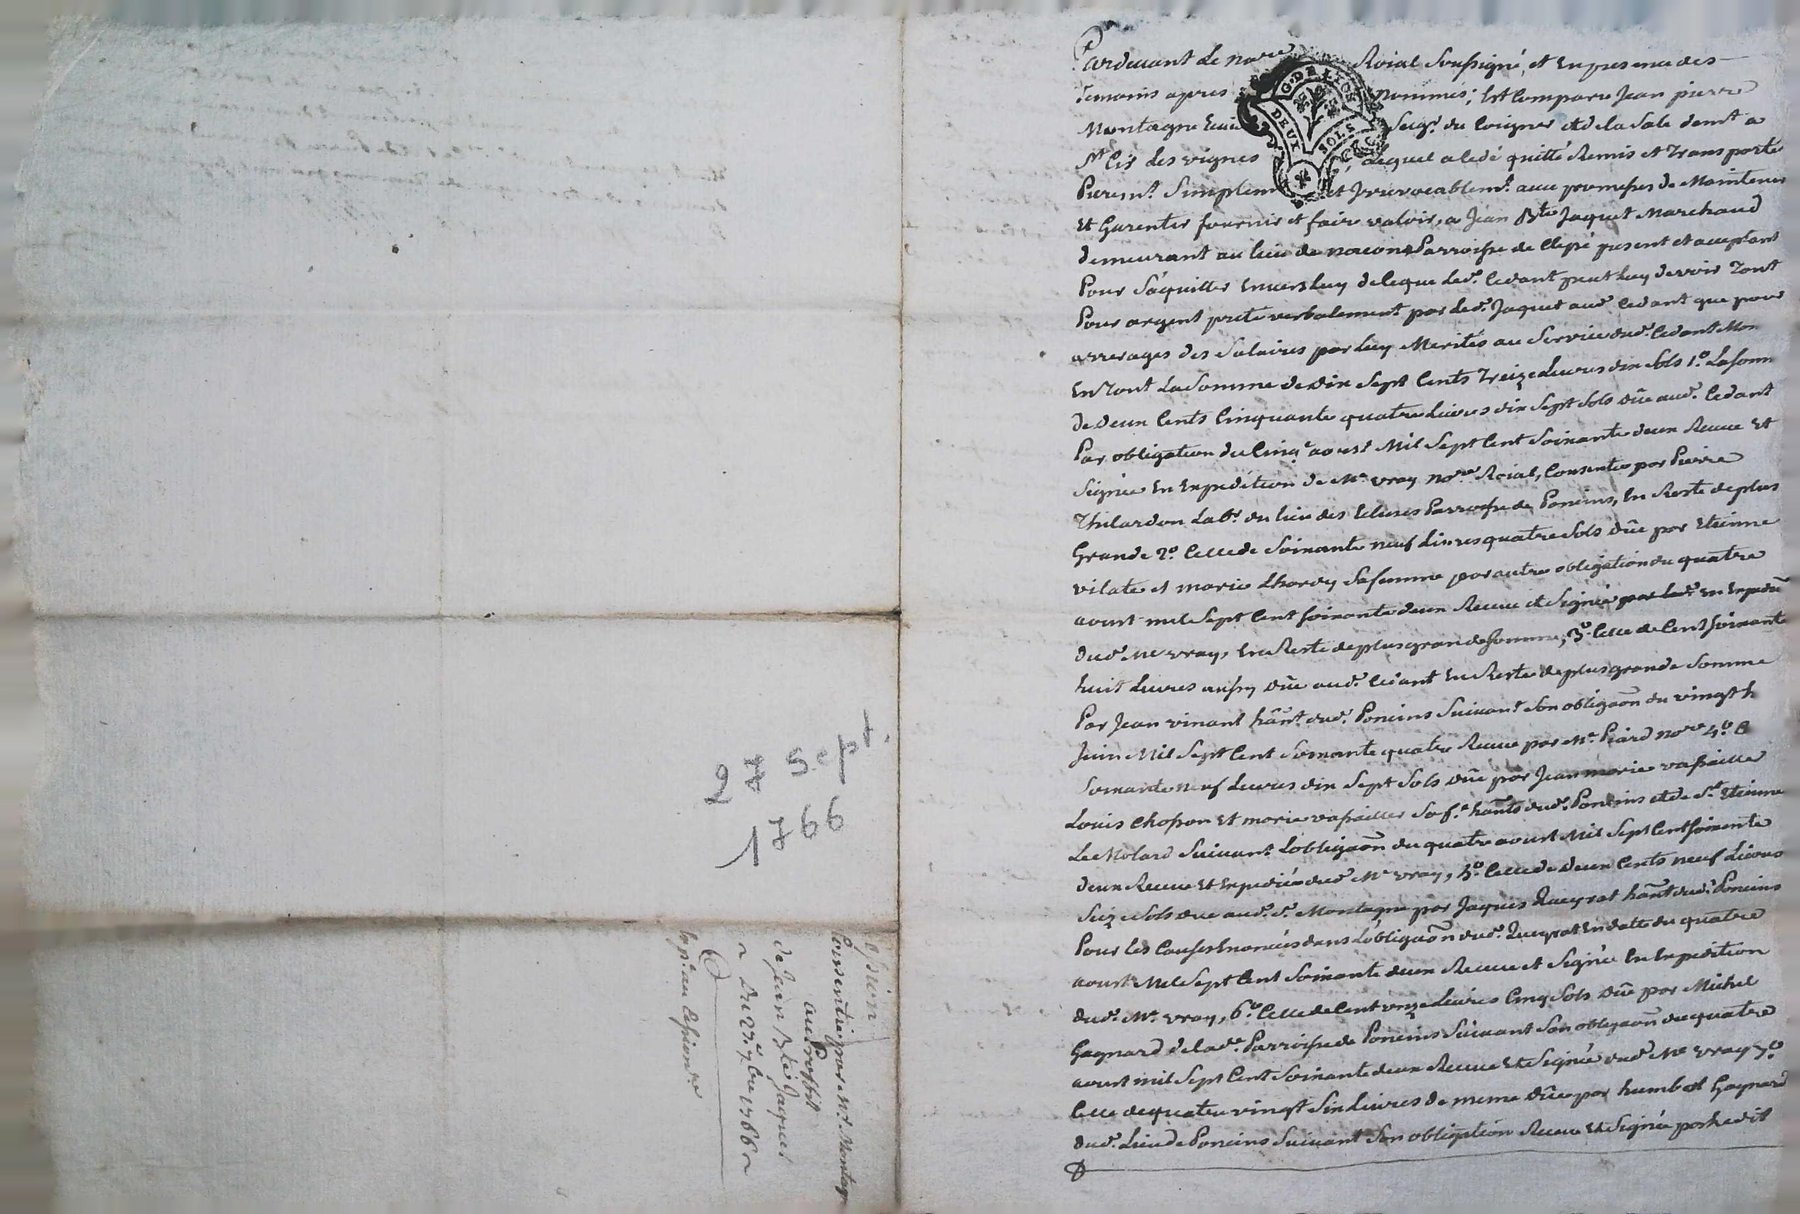 27 sept.
1766
Cession
Consentie par Mr. Montag
au Proffit
de Jean Bte Jaquet
Du 27e 7bre 1766
Expon au Cessionre
G. DE LYON
DEUX SOLS
Pardevant Le nore Roial Soussigné, et En presence des
Temoins apres nommés; Est Comparu Jean pierre
Montagne Ecuier Seigr. du Poigner et de la Sale demt a
St Cir les vignes Lequel a cedé quitté Remis et Transporté
Puremt. Simplem et Irrevocablemt. avec promesses de Maintenir
Et Garentir fournir et faire valoir, a Jean Bte Jaquet Marchand
demeurant au lieu de Parroisse de Clepé present et acceptant
Pour S'aquitter Envers luy de ce que Led. Cedant peut luy devoir Tant
Pour argent preté verbalement par led. Jaquet aud. Cedant que pour
arrerages des Salaires par luy Merités au Service dud. Cedant Mon
En Tout La Somme de dix Sept Cents Treize Livres dix Sols 1o. La Somm
de deux Cents Cinquante quatre Livres dix Sept Sols düe aud. Cedant
Par obligation du Cinq aoust Mil Sept Cent Soixante deux Receue Et
Signée En Expedition de Me vray nore Roial, Consentie par Pierre
Thilardon Labr. du lieu des Parroisse de Poncins, En Reste de plus
Grande 2o. Celle de Soixante neuf Livres quatre Sols düe par Etienne
vilate et marie Sa femme par autre obligation du quatre
aoust mil Sept Cent Soixante deux Receue et Signée par led. En Expedon
dud. Me vray, En Reste de plus grande Somme, 3o. Celle de Cent Soixante
huit Livres aussy düe aud. Cedant En Reste de plus grande Somme
Par Jean vinant hant. dud. Poncins Suivant Son obligaon du vingt h
Juin Mil Sept Cent Soixante quatre Receue par Me. Piard nore 4o. C
Soixante neuf Livres dix Sept Sols düe par Jean marie vassaille
Louis Chosson Et marie vassailles Sa fe. hants dud. Poncins et de St. Etienne
Le Molard Suivant L'obligaon du quatre aoust Mil Sept Cent Soixante
deux Receue Et Expediée dud. Me vray, 5o. Celle de deux Cents neuf Livres
Seize Sols due aud. Sr. Montagne par Jaques hant dud. Poncins
Pour les Causes Enoncées dans L'obligaon dud. En datte du quatre
aoust Mil Sept Cent Soixante deux Receue et Signée En Expedition
dud. Me. vray, 6o. Celle de Cent onze Livres Cinq Sols düe par Michel
Gagnard de lad. Parroisse de Poncins Suivant Son obligaon du quatre
aoust mil Sept Cent Soixante deux Receue Et Signée dud. Me vray 7o.
Celle de quatre vingt Six Livres de meme düe par humbert Gagnard
dud. Lieu de Poncins Suivant Son obligation Receue Et Signée par ledit